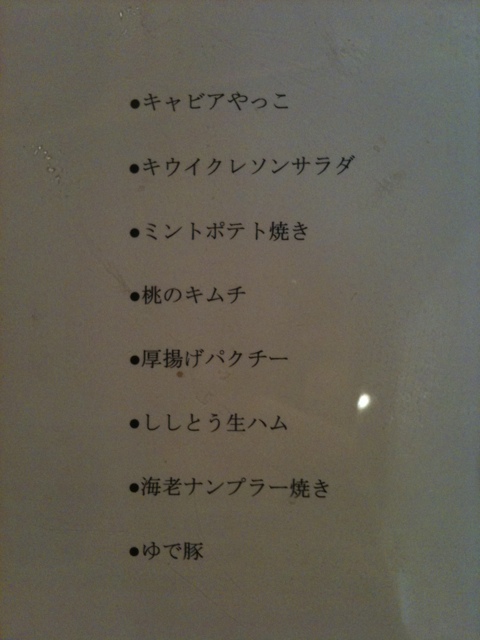 ●キャビアやっこ
●キウイクレソンサラダ
●ミントポテト焼き
●桃のキムチ
●厚揚げパクチー
●ししとう生ハム
●海老ナンプラー焼き
●ゆで豚